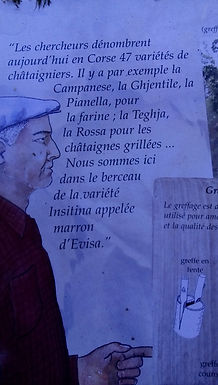 “Les chercheurs dénombrent
aujourd’hui en Corse 47 variétés de
châtaigniers. Il y a par exemple la
Campanese, la Ghjentile, la
Pianella, pour
la farine ; la Teghja,
la Rossa pour les
châtaignes grillées ...
Nous sommes ici
dans le berceau
de la variété
Insitina appelée
marron
d’Evisa.”
(greff
Gr
Le greffage est
utilisé pour am
et la qualité des
greffe en
fente